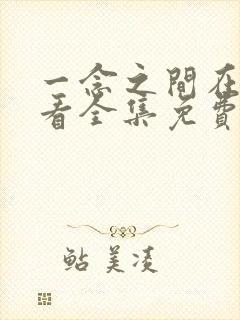 一念之間在
看全集免費
鲇美凌